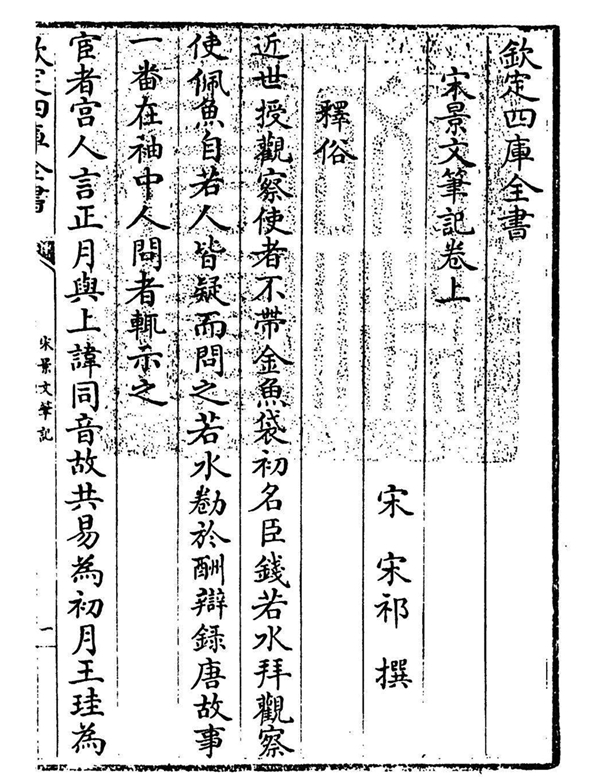 欽定四庫全書
宋景文筆記卷上
宋 宋祁 撰
釋俗
近世授觀察使者不帶金魚袋初名臣錢若水拜觀察
使佩魚自若人皆疑而問之若水勌於酬辯錄唐故事
一番在袖中人問者輒示之
宦者宫人言正月與上諱同音故共易為初月王珪為
欽定四庫全書
宋景文筆記
一